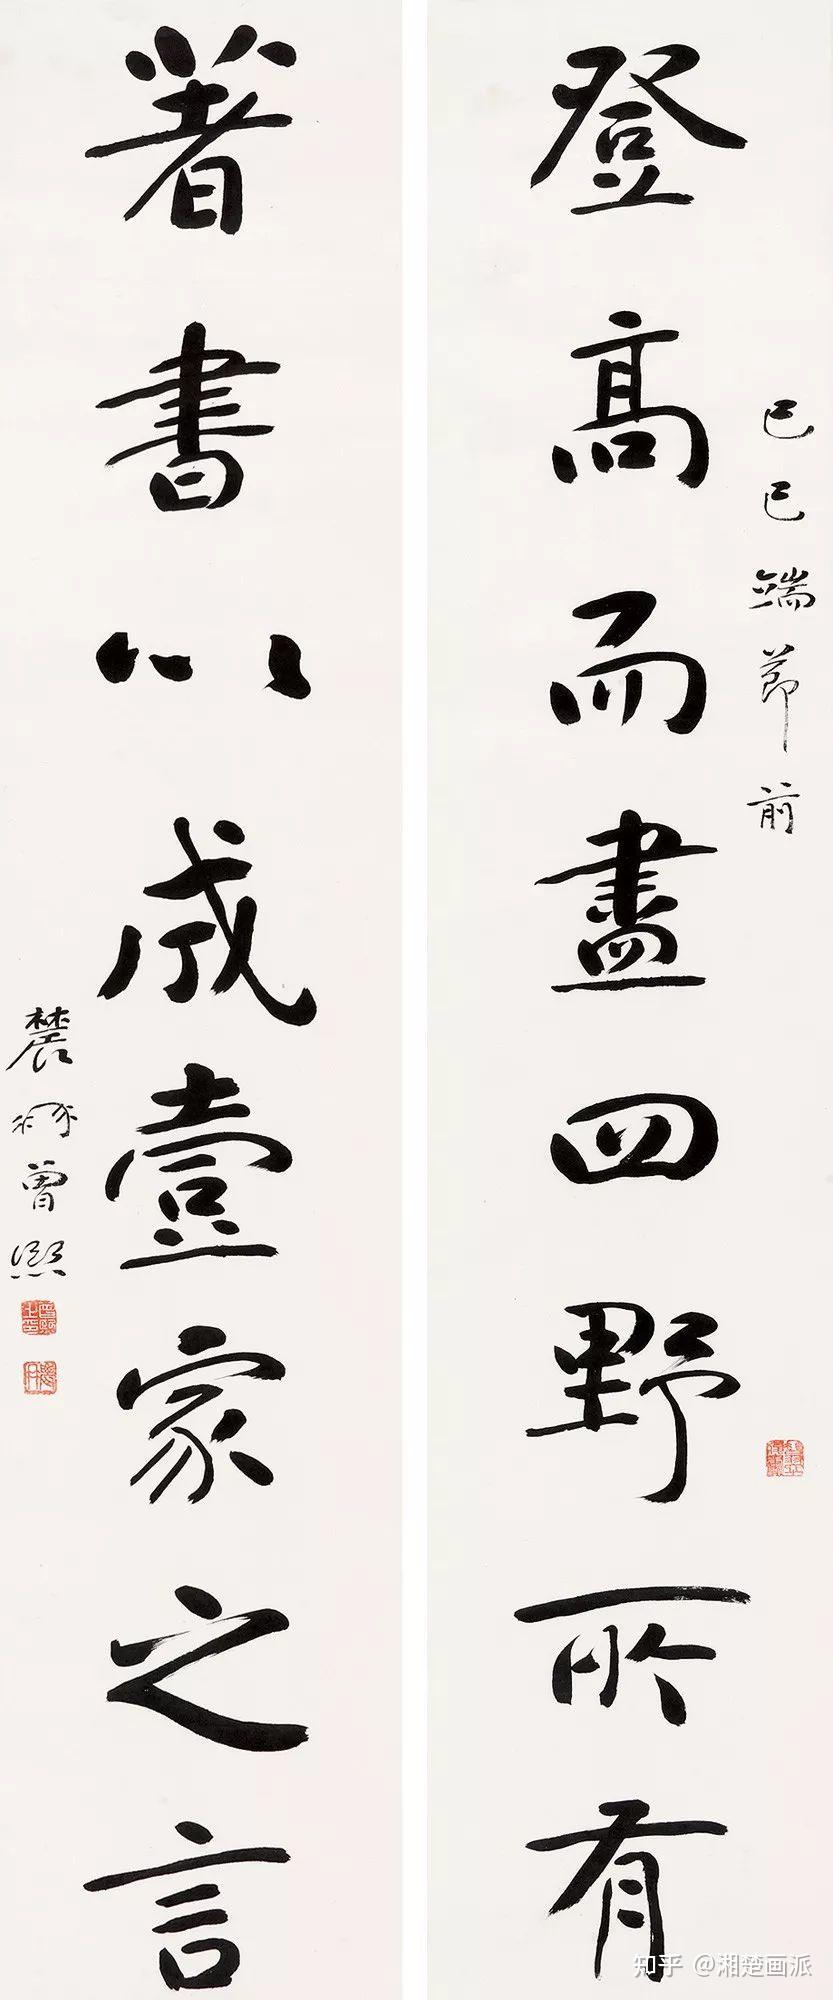 己巳端節前
登高而盡四野所有
著書以成壹家之言
農髯曾熙
知乎 @湘楚画派